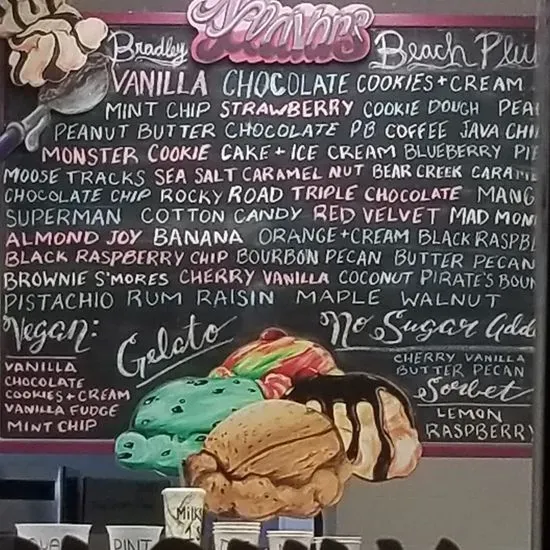 Flavors
Bradley Beach Plu
VANILLA CHOCOLATE COOKIES+CREAM
MINT CHIP STRAWBERRY COOKIE DOUGH PEA
PEANUT BUTTER CHOCOLATE PB COFFEE JAVA CHI
MONSTER COOKIE CAKE+ICE CREAM BLUEBERRY PIE
MOOSE TRACKS SEA SALT CARAMEL NUT BEAR CREEK CARAME
CHOCOLATE CHIP ROCKY ROAD TRIPLE CHOCOLATE MANG
SUPERMAN COTTON CANDY RED VELVET MAD MON
ALMOND JOY BANANA ORANGE+CREAM BLACK RASPB
BLACK RASPBERRY CHIP BOURBON PECAN BUTTER PECAN
BROWNIE S'MORES CHERRY VANILLA COCONUT PIRATE'S BOUN
PISTACHIO RUM RAISIN MAPLE WALNUT
Vegan:
VANILLA
CHOCOLATE
COOKIES+CREAM
VANILLA FUDGE
MINT CHIP
Gelato
No Sugar Adde
CHERRY VANILLA
BUTTER PECAN
Sorbet
LEMON
RASPBERRY
PINT